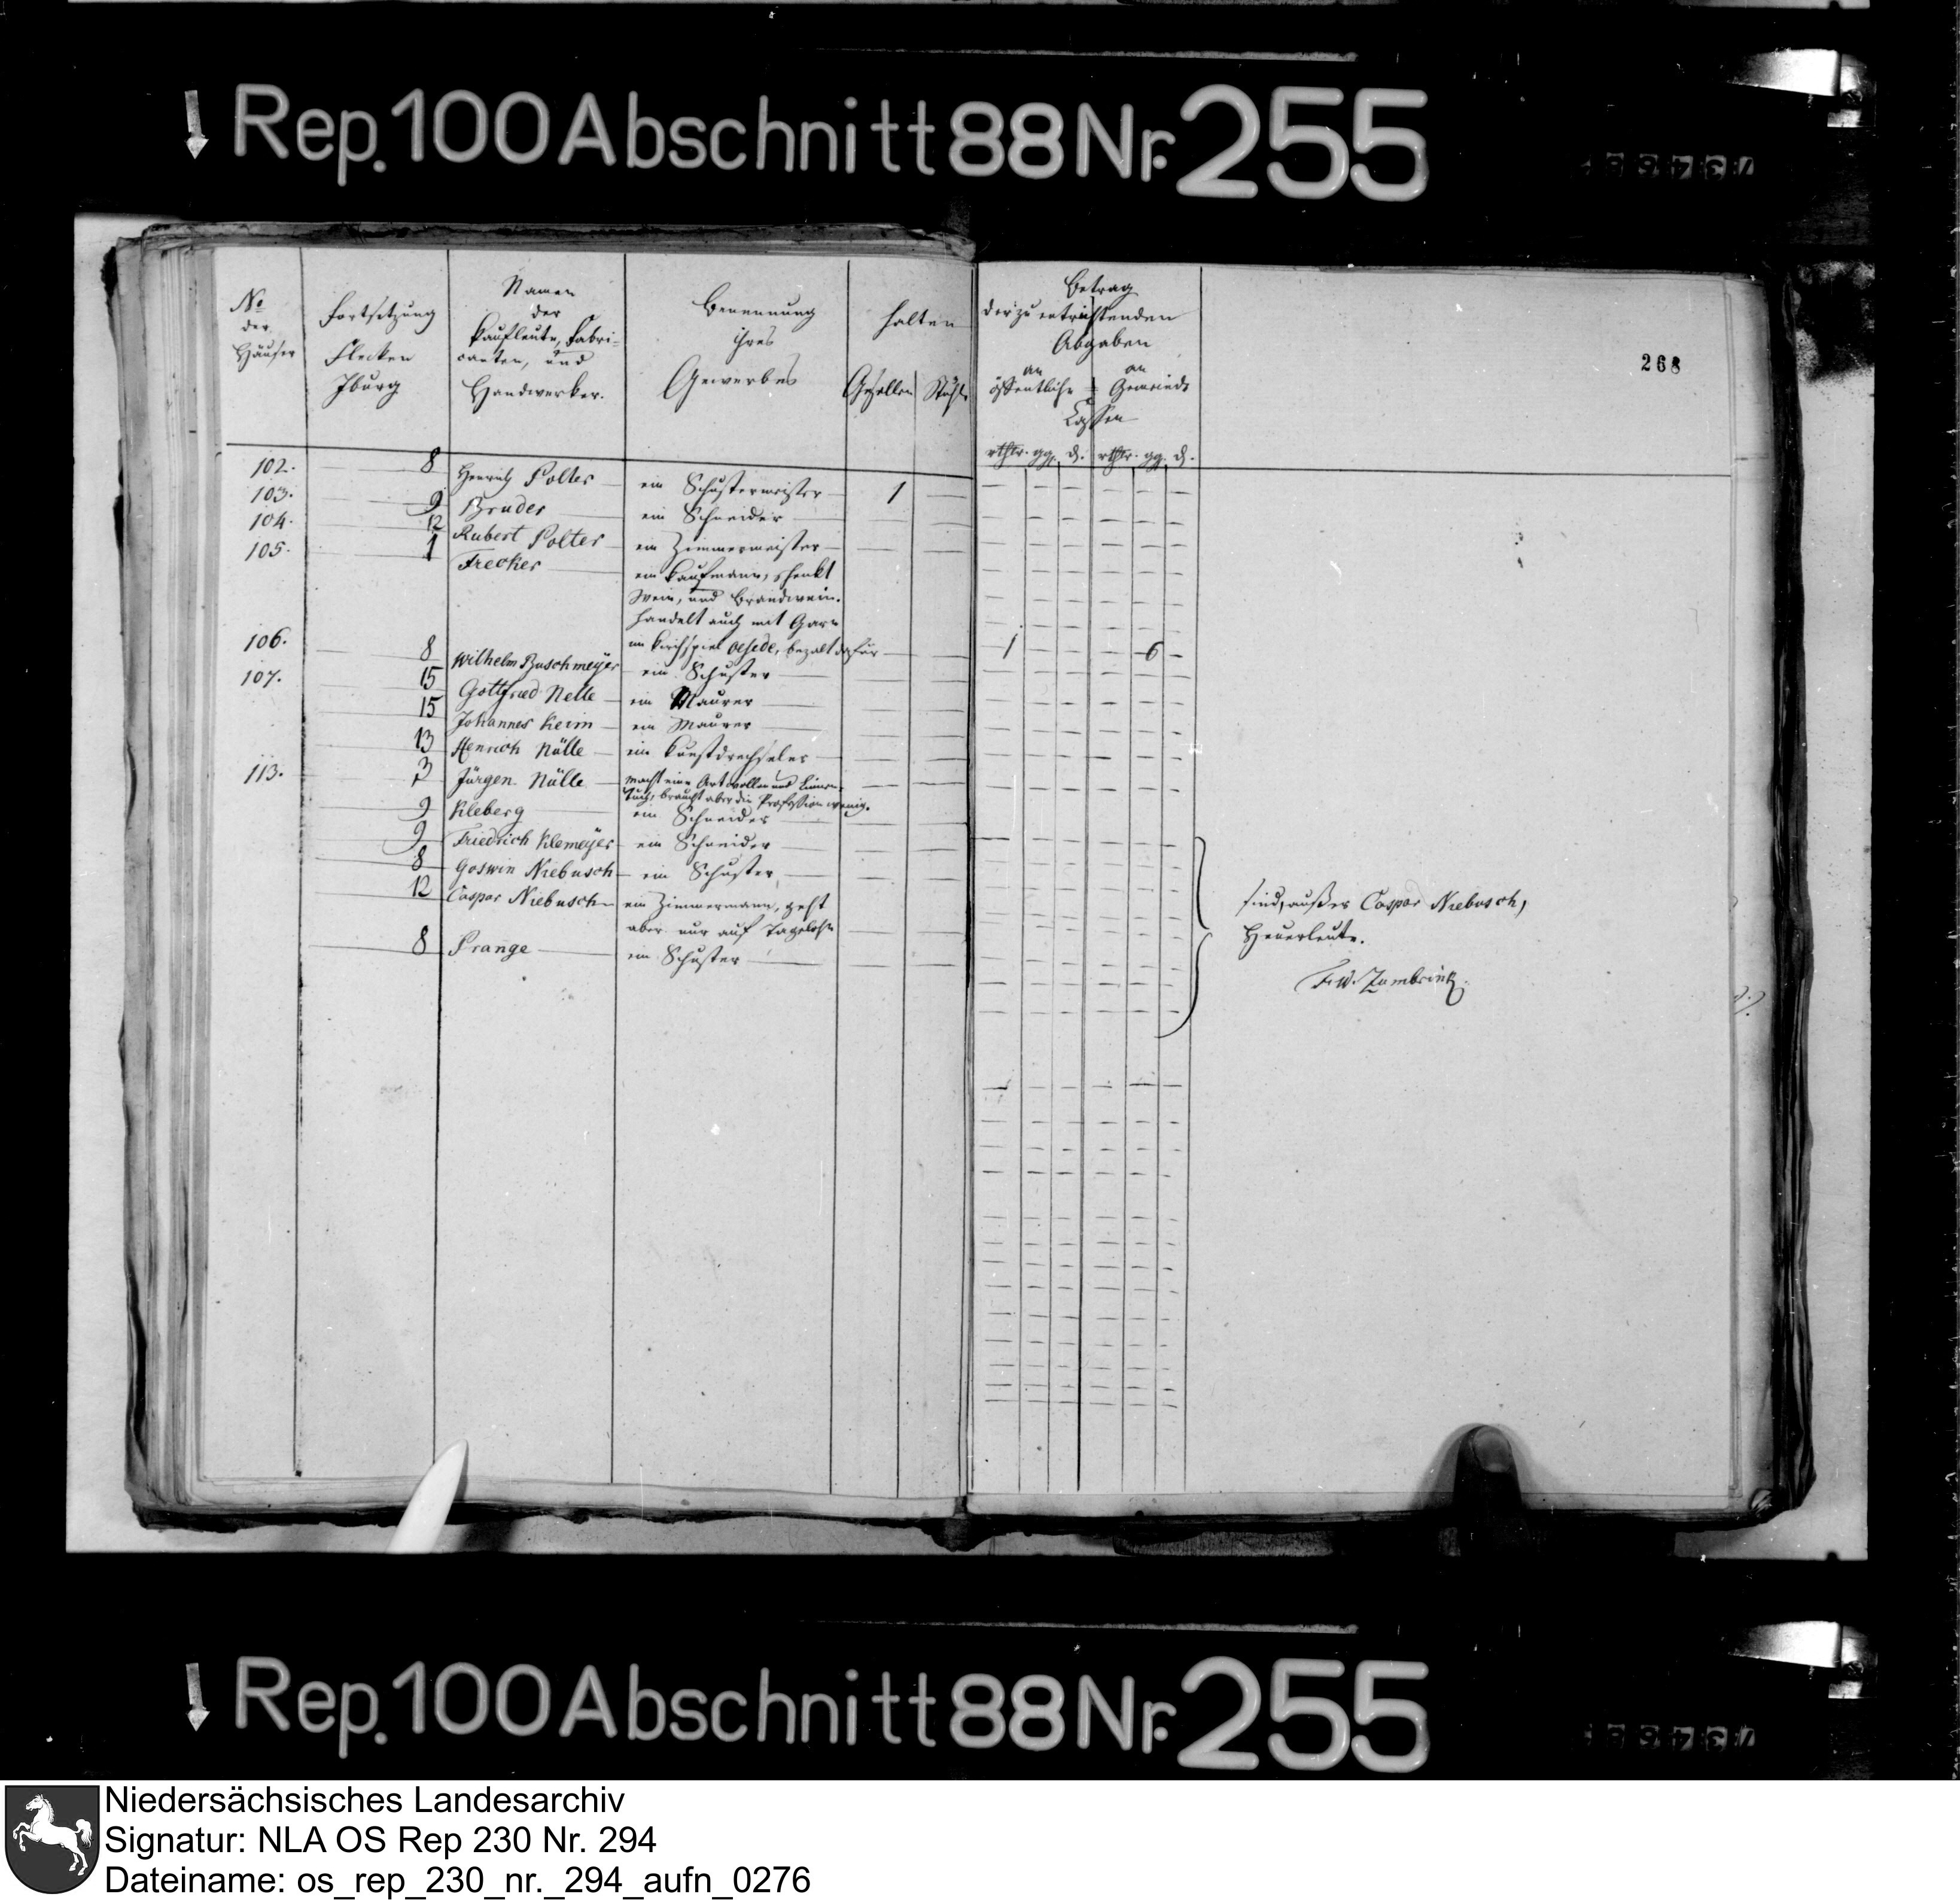 Rep. 100 Abschnitt 88 Nr. 255
268
No der Häuser
Fortsetzung Flecken Iburg
Namen der Kaufleute, Fabricanten, und Handwerker.
Benennung ihres Gewerbes
halten
Gesellen Stühle
Betrag der zu entrichtenden Abgaben
an öffentliche = an Gemeinde
Cassen
rthlr. gg. d. rthlr. gg. d.
102. 8 Henrich Polter ein Schustermeister 1
103. 9 Bruder ein Schneider
104. 12 Rubert Polter ein Zimmermeister
105. 1 Frecker ein Kaufmann, schenkt
Wein, und Brandwein.
handelt auch mit Garn
im Kirchspiel Oesede, bezalt dafür 1 6
106. 8 Wilhelm Buschmeÿer ein Schuster
107. 15 Gottfried Nelle ein Maurer
15 Johannes Keim ein Maurer
13 Henrich Nülle ein Kunstdrechseler
113. 3 Jürgen Nülle macht eine Art wollen und Linnen
Tuch, braucht aber die Profession wenig.
9 Kleberg ein Schneider
9 Friedrich Klemeÿer ein Schneider
8 Goswin Niebusch ein Schuster
12 Caspar Niebusch ein Zimmermann, geht
aber nur auf Tagelohn
8 Prange ein Schuster
sind, außer Caspar Niebusch,
Heuerleute.
F. W. Zumbrink
Rep. 100 Abschnitt 88 Nr. 255
Niedersächsisches Landesarchiv
Signatur: NLA OS Rep 230 Nr. 294
Dateiname: os_rep_230_nr._294_aufn_0276